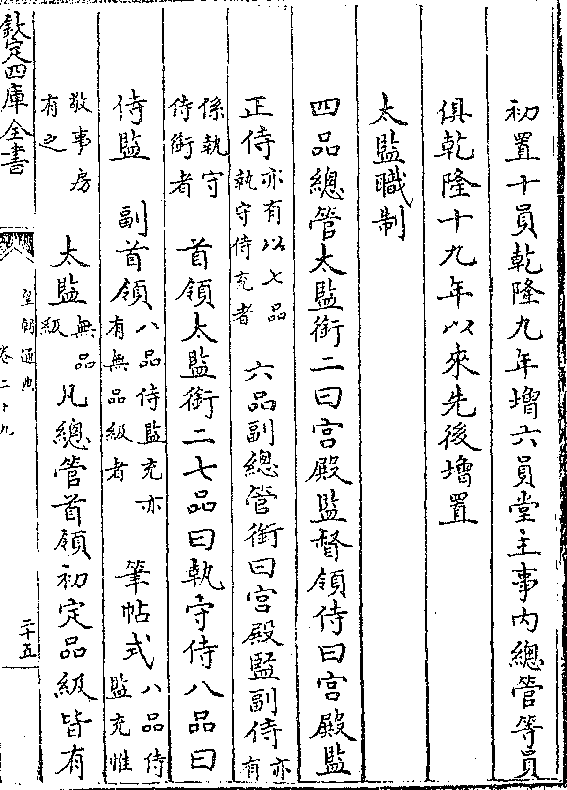 初置十員乾隆九年增六員堂主事内總管等員
俱乾隆十九年以來先後增置
太監職制
四品總管太監銜二曰宮殿監督領侍曰宮殿監
正侍亦有以七品執守侍充者 六品副總管銜曰宮殿監副侍亦有
係執守侍銜者 首領太監銜二七品曰執守侍八品曰
侍監 副首領八品侍監充亦有無品級者 筆帖式八品侍監充惟
敬事房有之 太監無品級 凡總管首領初定品級皆有
欽定四庫全書
皇朝通典
卷二十九
二十五